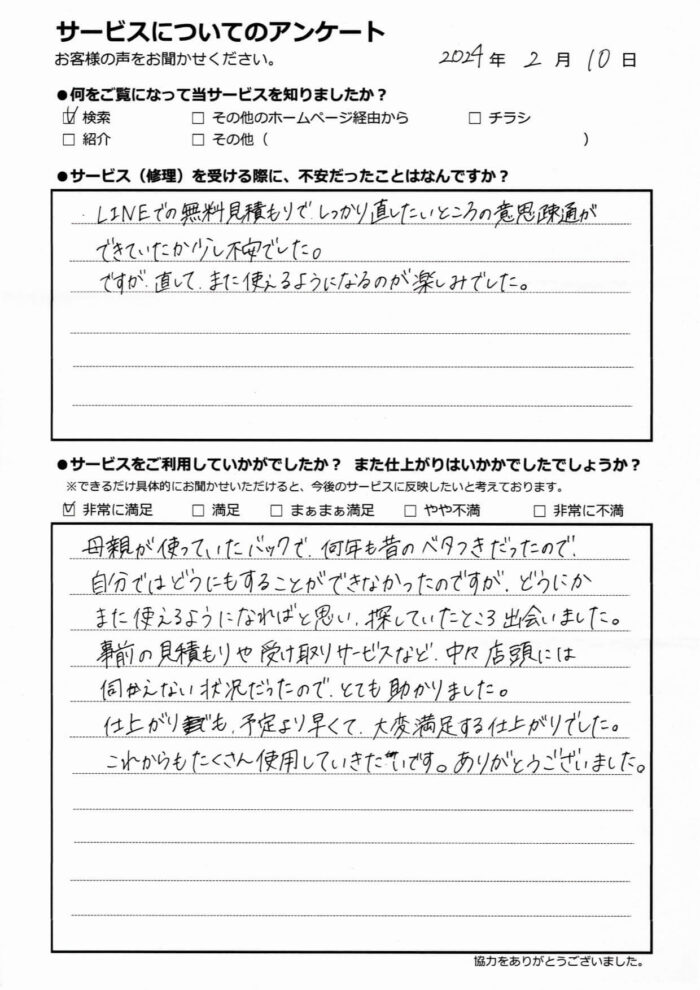 サービスについてのアンケート
お客様の声をお聞かせください。
2024年 2月 10日
●何をご覧になって当サービスを知りましたか？
☑ 検索 □ その他のホームページ経由から □ チラシ
□ 紹介 □ その他（ ）
●サービス（修理）を受ける際に、不安だったことはなんですか？
・LINEでの無料見積もりで、しっかり直したいところの意思疎通が
できていたか少し不安でした。
ですが、直して、また使えるようになるのが楽しみでした。
●サービスをご利用していかがでしたか？ また仕上がりはいかかでしたでしょうか？
※できるだけ具体的にお聞かせいただけると、今後のサービスに反映したいと考えております。
☑ 非常に満足 □ 満足 □ まぁまぁ満足 □ やや不満 □ 非常に不満
母親が使っていたバックで、何年も昔のベタつきだったので、
自分ではどうにもすることができなかったのですが、どうにか
また使えるようになればと思い、探していたところ出会いました。
事前の見積もりや受け取りサービスなど、中々店頭には
伺かえない状況だったので、とても助かりました。
仕上がりも、予定より早くて、大変満足する仕上がりでした。
これからもたくさん使用していきたいです。ありがとうございました。
協力をありがとうございました。